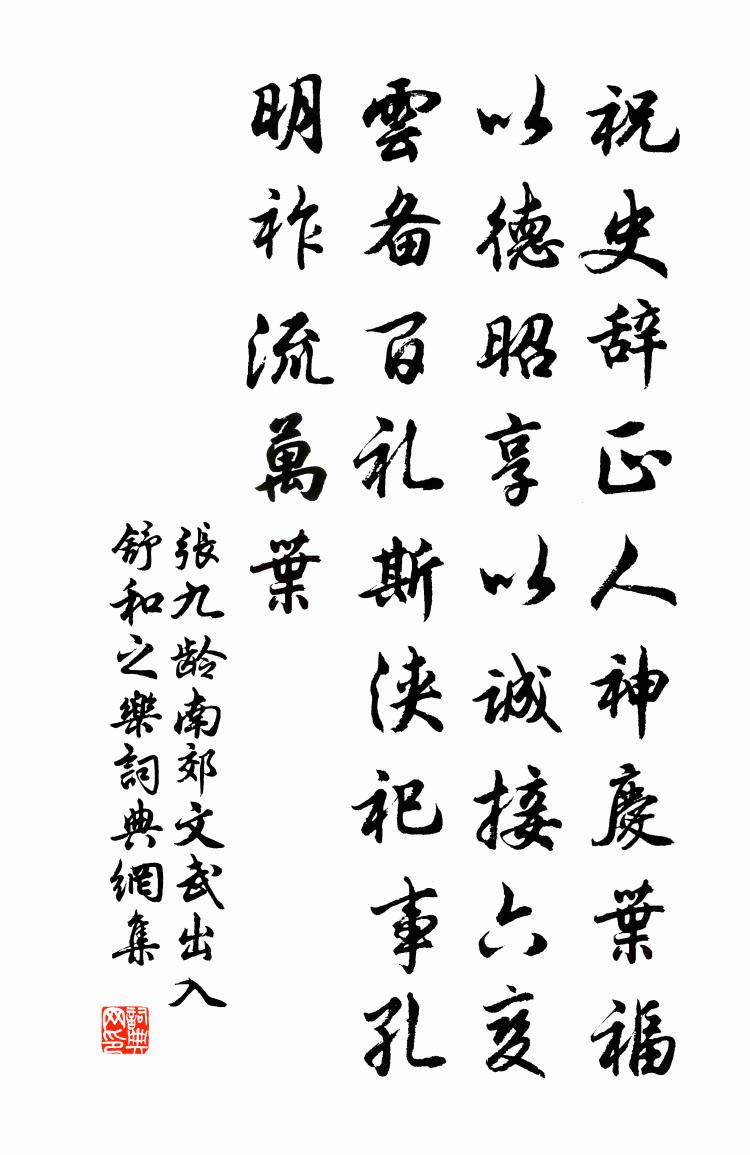 祝史辞正人神慶葉福
以德昭享以诚接六变
雲备百礼斯浃祀事孔
明祚流萬葉
張九龄南郊文武出入
舒和之樂詞典網集
詞典网印